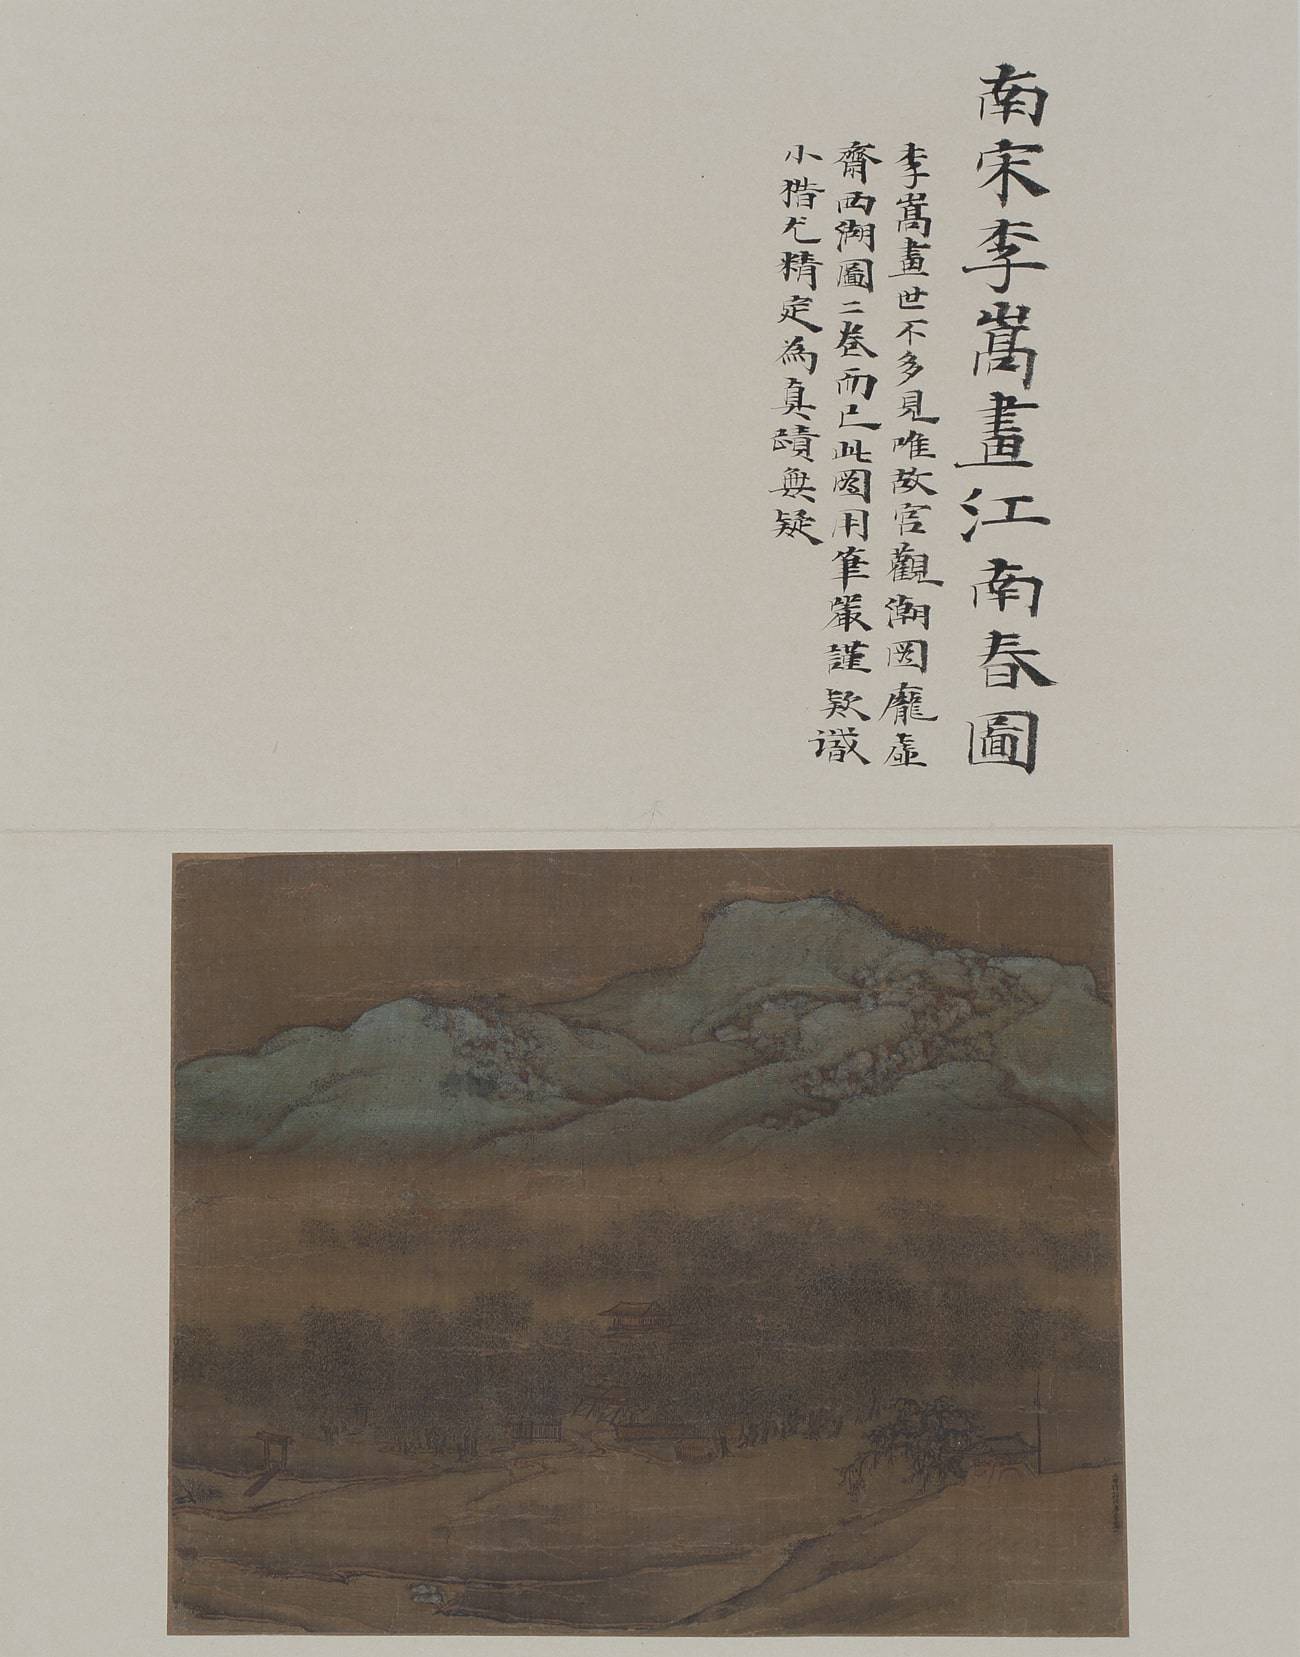 南宋李嵩畫江南春圖
李嵩畫世不多見唯故宮觀潮圖龐虛
齋西湖圖二卷而已此圖用筆嚴謹款識
小楷尤精定為真蹟無疑